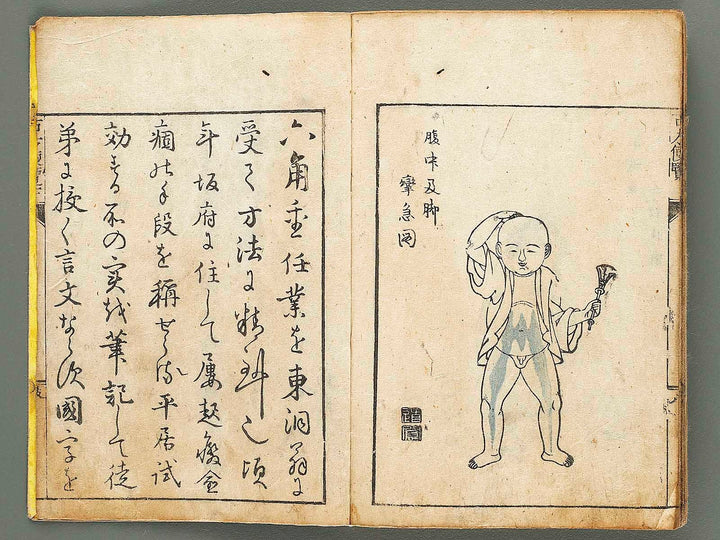 腹中及脚
攣急図
六角重任業を東洞翁に
受く方法に精到し頃
年坂府に住して屡起癈金
痼の手段を称せらる平居試
効する所の実を筆記して徒
弟に授く言文ならず国字を